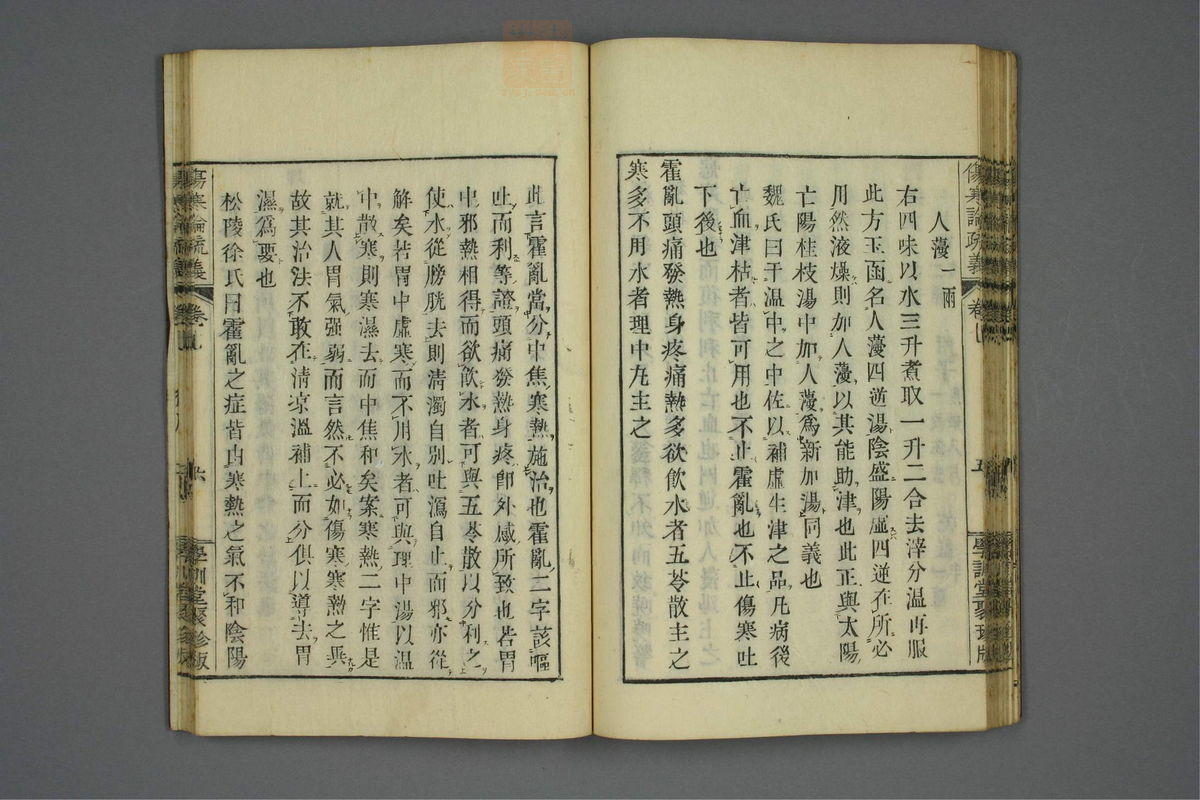 傷寒論疏義
學訓堂聚珍版
人薓一兩
右四味以水三升煮取一升二合去滓分温再服
此方玉函名人薓四逆湯陰盛陽虛四逆在所必
用然液燥則加人薓以其能助津也此正與太陽
亡陽桂枝湯中加人薓爲新加湯同義也
魏氏曰于温中之中佐以補虛生津之品凡病後
亡血津枯者皆可用也不止霍亂也不止傷寒吐
下後也
霍亂頭痛發熱身疼痛熱多欲飲水者五苓散主之
寒多不用水者理中丸主之
此言霍亂當分中焦寒熱施治也霍亂二字該嘔
吐而利等證頭痛發熱身疼卽外感所致也若胃
中邪熱相得而欲飲水者可與五苓散以分利之
使水從膀胱去則清濁自別吐瀉自止而邪亦從
解矣若胃中虛寒而不用水者可與理中湯以温
中散寒則寒濕去而中焦和矣案寒熱二字惟是
就其人胃氣强弱而言然不必如傷寒寒熱之異
故其治法不敢在清凉溫補上而分俱以導去胃
濕爲要也
松陵徐氏曰霍亂之症皆由寒熱之氣不和陰陽
傷寒論疏義
學訓堂聚珍版